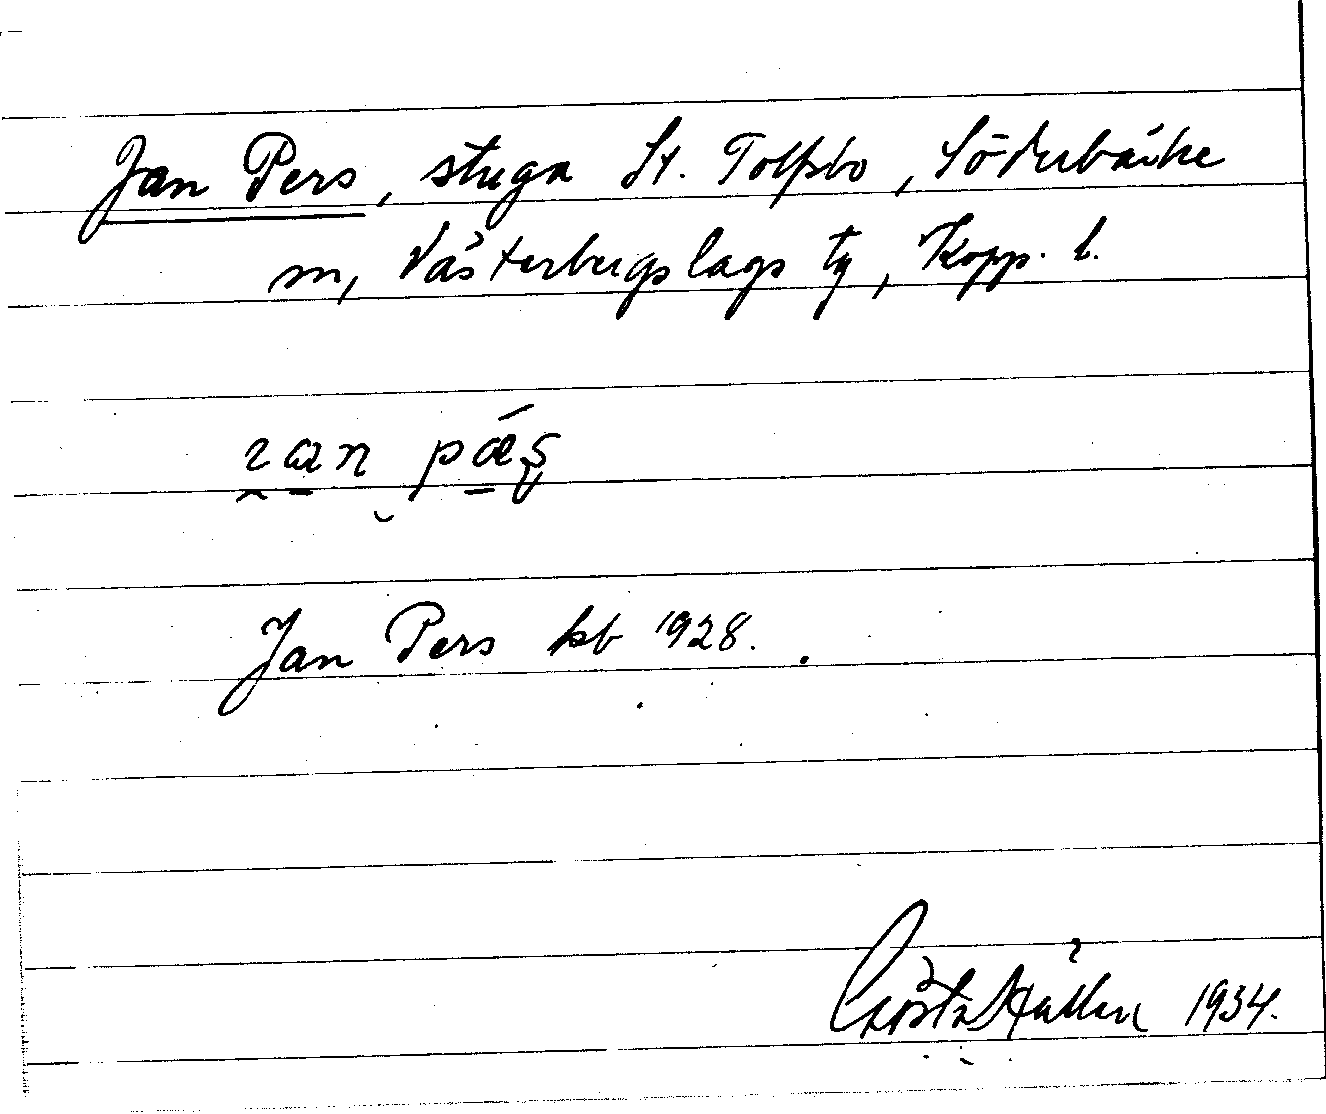 Jan Pers, stuga St. Tolfsbo, Söderbärke
m, Västerbergslags tg, Kopp. l.
Jan Pers kb 1928.
Gösta Hallén 1934.